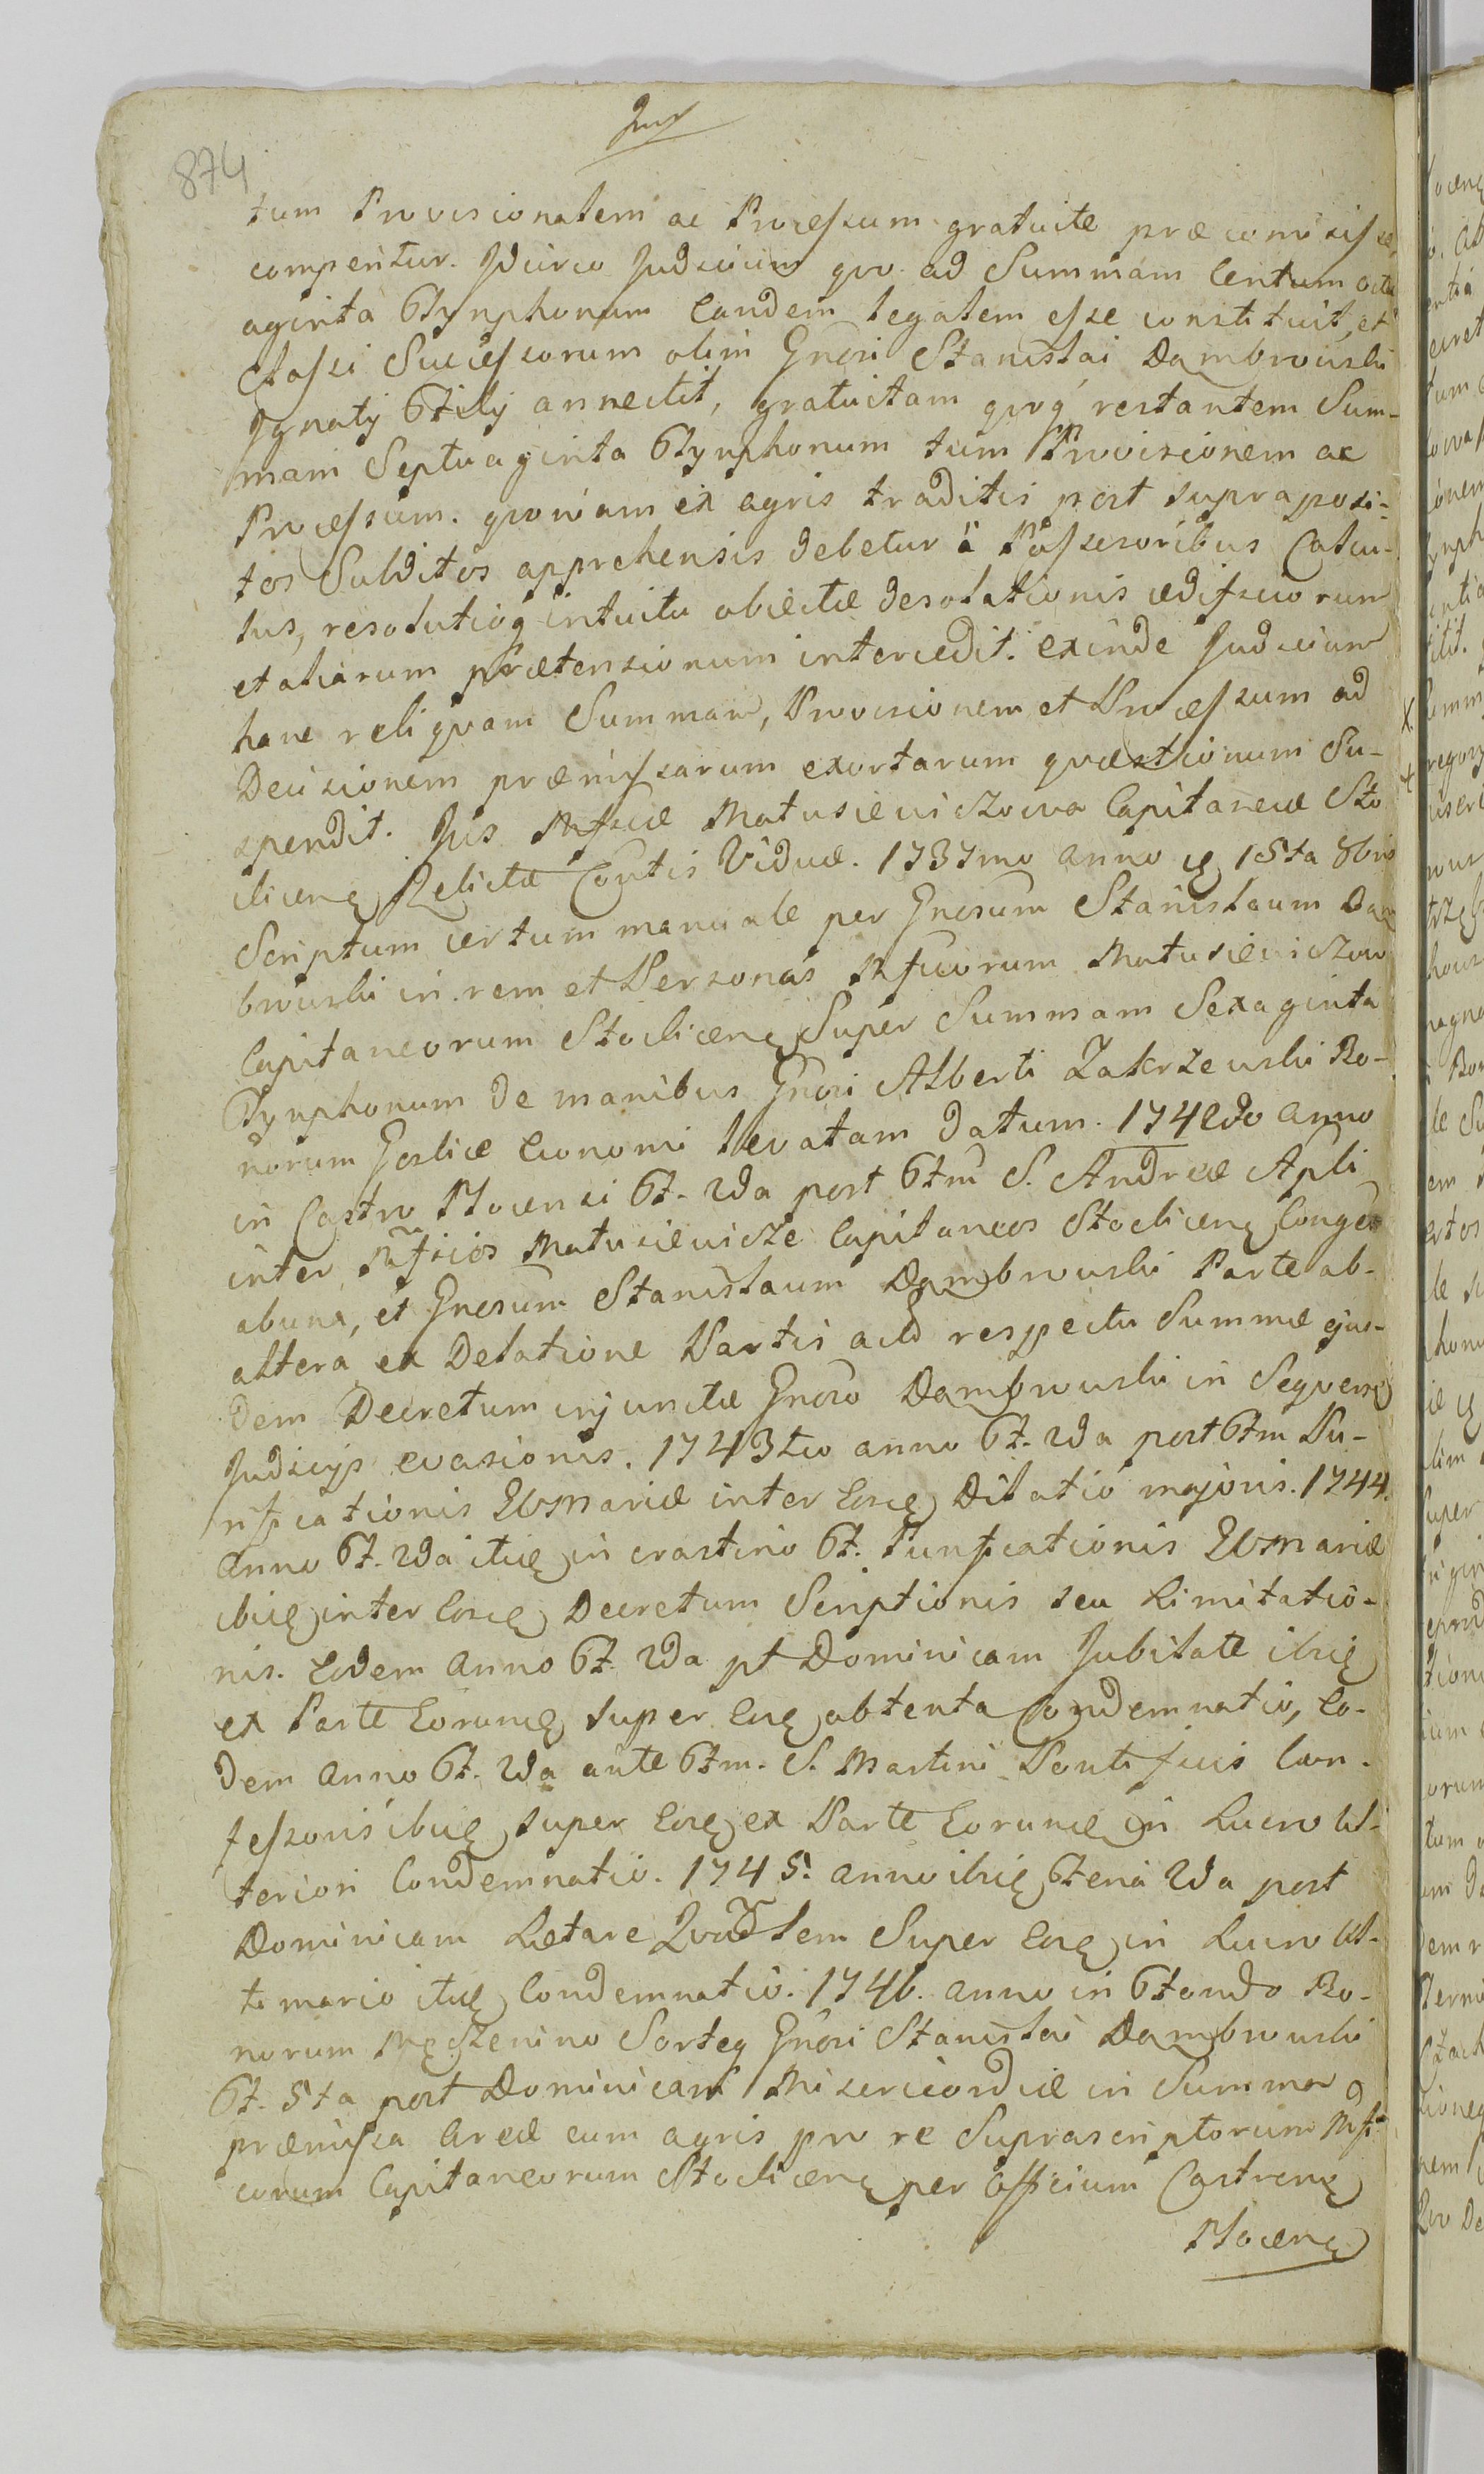 874
tum Provisionalem ac Processum gratuite præcomisisse
comperitur. Idcirco Judicium quo ad Summam Centum octu
aginta Tynphonum Eandem legalem esse constituit, et
Classi Successorum olim Gnosi Stanislai Dambrowski
Ignatij Filij annectit, gratuitam quoq restantem Sum-
mam Septuaginta Tynphonum tum Provisionem ac
Processum. quoniam ex agris traditis post supraposi-
tos Subditos apprehensis debetur à Possessoribus Calcu-
lus, resolutioq intuitu obiectæ desolationis ædificiorum
et aliarum prætensionum intercedit. exinde Judicium
hanc reliquam Summam, Provisionem et Processum ad
Decisionem præmissarum exortarum quæstionum Su-
spendit. Jus Mfcæ Matusiewiczowa Capitaneæ Sto
clicens Relictæ Contis Viduæ. 1737mo anno 15ta 8bris
Scriptum certum manuale per Gnosum Stanislaum Dam
browski in rem et Personas Mfcorum Matusiewiczow
Capitaneorum Stoclicens Super Summam Sexaginta
Tynphonum de manibus Gnosi Alberti Zakrzewski Bo-
norum Goslice Economi levatam datum. 1742do anno
in Castro Plocensi 6t. 2da post 6tm S. Andreæ Apli
inter Mfcos Matusiewicze Capitaneos Stoclicens Conges
ab una, et Gnosum Stanislaum Dambrowski Parte ab-
altera, ex Delatione Partis act respectu Summæ ejus-
dem Decretum injunctæ Gnoso Dambrowski in Sequens
Judicijs evasionis. 1743tio anno 6t. 2da post 6tm Pu-
rificationis BVMariæ inter Eosq Dilatio majoris. 1744.
Anno 6t. 2da itq in crastino 6t. Purificationis BVMariæ
ibiq inter Eosq Decretum Scriptionis seu Limitatio-
nis. Eodem anno 6t. 2da pt Dominicam Jubilate ibiq
ex Parte Eorunq super Eosq obtenta Condemnatio, Eo-
dem anno 6t. 2da ante 6tm. S. Martini Pontificis Con-
fessoris ibiq super Eosq ex Parte Eorunq in Lucro Ul-
teriori Condemnatio. 1745. anno ibiq 6teria 2da post
Dominicam Lætare Quadlem Super Eosq in Lucro Ul-
timario itq Condemnatio. 1746. anno in 6tando Bo-
norum Męczenino Sorteq Gnosi Stanislai Dambrowski
6t. 5ta post Dominicam Misericordiæ in Summa
præmissa Areæ cum agris pro re Suprascriptorum Mfi-
corum Capitaneorum Stoclicens per Officium Castrens
Plocens